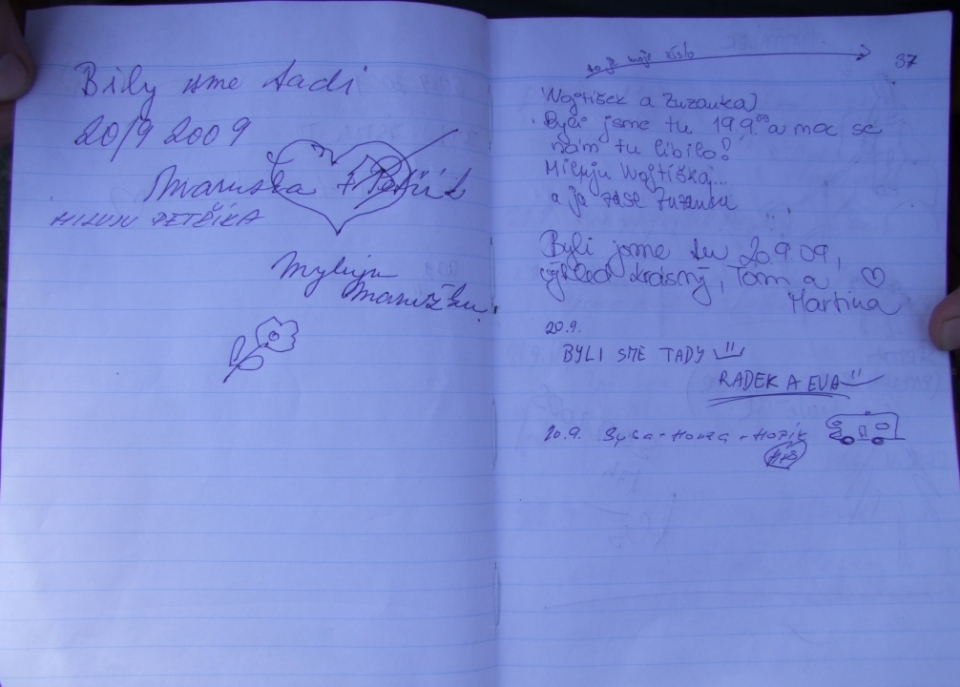 Bily sme tadi
20/9 2009
Maruska + Petřík
MILUJU PETŘÍKA
Myluju
Marušku
to je moje číslo 37
Wojtíšek a Zuzanka)
Byli jsme tu 19.9.09 a moc se
nám tu líbilo!
Miluju Wojtíška...
a já zase Zuzanku
Byli jsme tu 20.9.09,
výhled krásný, Tom a
Martina
20.9.
BYLI SME TADY
RADEK A EVA
20.9. - Honza -